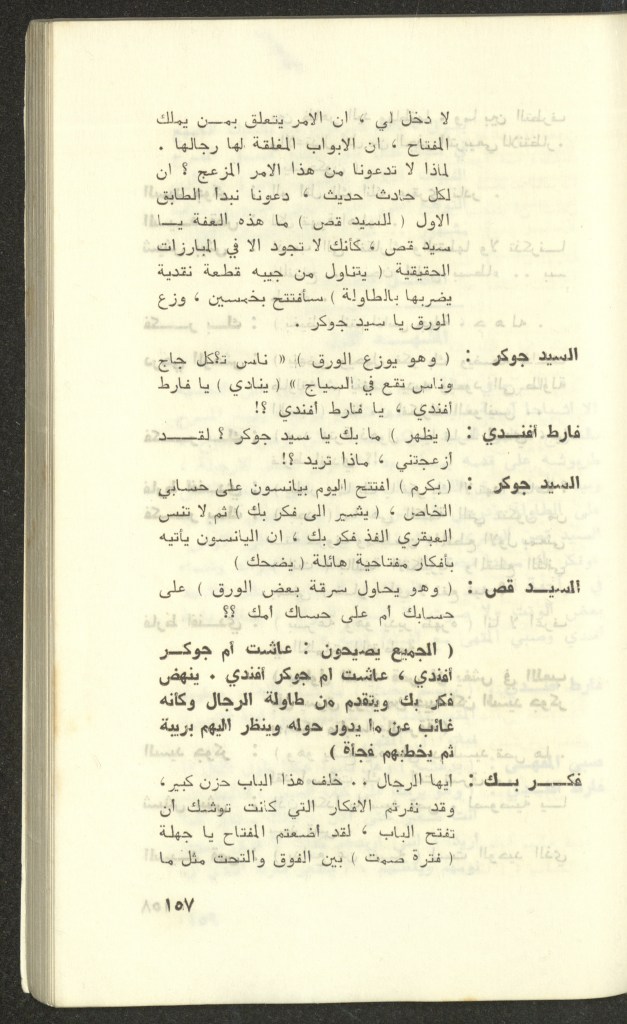 لا دخل لي ، ان الامر يتعلق بمـــن يملك
المفتاح ، ان الابواب المغلقة لها رجالها .
لماذا لا تدعونا من هذا الامر المزعج ؟ ان
لكل حادث حديث ، دعونا نبدا الطابق
الاول ( للسيد قص ) ما هذه العفة يـــا
سيد قص ، كأنك لا تجود الا في المبارزات
الحقيقية ( يتناول من جيبه قطعة نقدية
يضربها بالطاولة ) سأفتتح بخمسين ، وزع
الورق يا سيد جوكر .
السيد جوكر : ( وهو يوزع الورق ) « ناس تأكل جاج
وناس تقع في السياج » ( ينادي ) يا فارط
أفندي ، يا فارط أفندي ؟!
فارط أفنــدي : ( يظهر ) ما بك يا سيد جوكر ؟ لقــــد
ازعجتني ، ماذا تريد ؟!
السيد جوكر : ( بكرم ) افتتح اليوم بيانسون على حسابي
الخاص ، ( يشير الى فكر بك ) ثم لا تنس
العبقري الفذ فكر بك ، ان اليانسون يأتيه
بأفكار مفتاحية هائلة ( يضحك )
السيــد قص : ( وهو يحاول سرقة بعض الورق ) على
حسابك أم على حساك امك ؟؟
( الجميع يصيحون : عاشت أم جوكـــر
أفندي ، عاشت ام جوكر أفندي . ينهض
فكر بك ويتقدم من طاولة الرجال وكأنه
غائب عن ما يدور حوله وينظر اليهم بريبة
ثم يخطبهم فجأة )
فكـــر بــك : ايها الرجال .. خلف هذا الباب حزن كبير،
وقد نفرتم الافكار التي كانت توشك ان
تفتح الباب ، لقد اضعتم المفتاح يا جهلة
( فترة صمت ) بين الفوق والتحت مثل ما
١٥٧